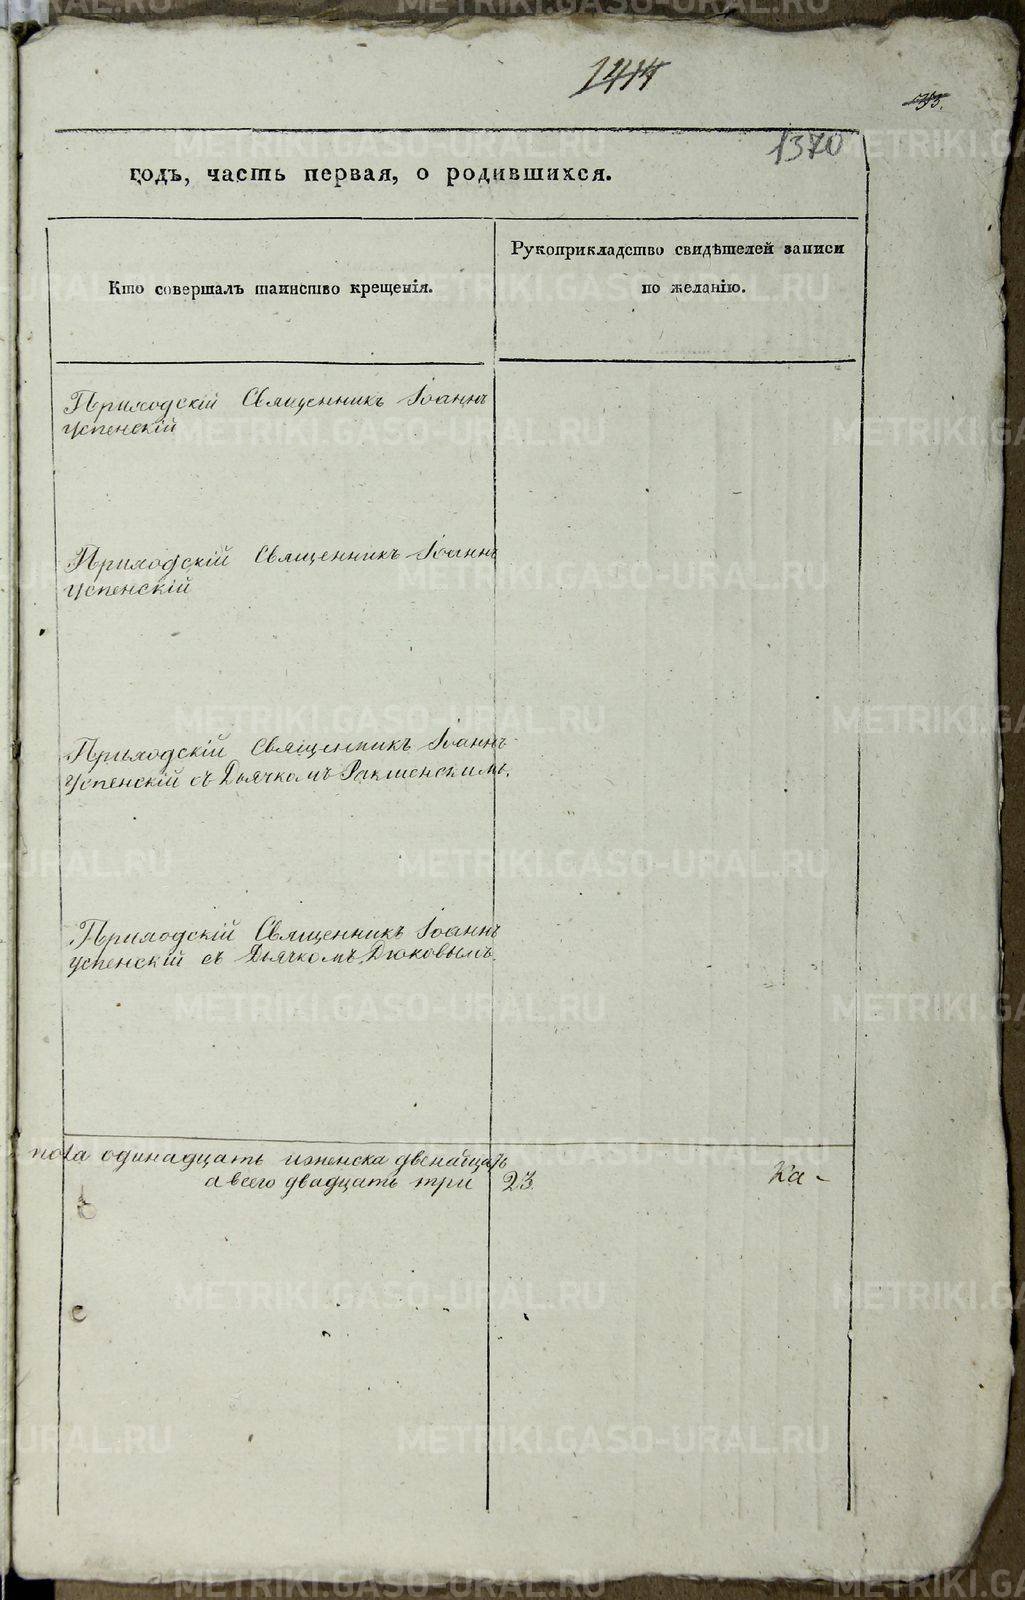 1414
1370
годъ, часть первая, о родившихся.
Кто совершалъ таинство крещенія.
Рукоприкладство свидѣтелей записи
по желанію.
Приходскій Священникъ Іоаннъ
Успенскій
Приходскій Священникъ Іоаннъ
Успенскій
Приходскій Священникъ Іоаннъ
Успенскій съ Дьячкомъ
Приходскій Священникъ Іоаннъ
Успенскій съ Дьячкомъ Дюковымъ.
пола одинадцать и женска двенадцать
а всего двадцать три 23
METRIKI.GASO-URAL.RU